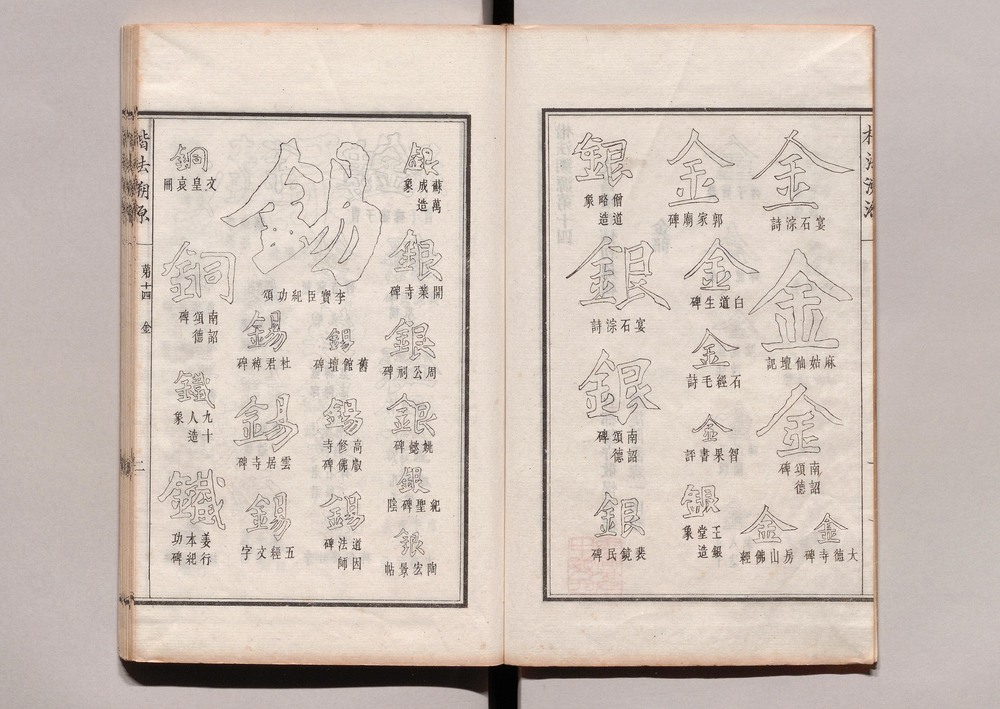 金
宴石淙詩
金
麻姑仙壇記
金
南詔德頌碑
金
大德寺碑
金
郭家廟碑
金
白道生碑
金
石經毛詩
金
智果書評
金
房山佛經
銀
王銀堂造象
銀
僧道略造象
銀
宴石淙詩
銀
南詔德頌碑
銀
裴鏡民碑
銀
蘇萬成造象
銀
開業寺碑
銀
周公祠碑
銀
姚懿碑
銀
紀聖碑陰
銀
陶宏景帖
錫
李寶臣紀功頌
錫
舊館壇碑
錫
高叡修佛寺碑
錫
道因法師碑
錫
杜君綽碑
錫
雲居寺碑
錫
五經文字
銅
文皇哀冊
銅
南詔德頌碑
鐵
九十人造象
鐵
姜行本紀功碑
楷法溯原
弟十四
金
二